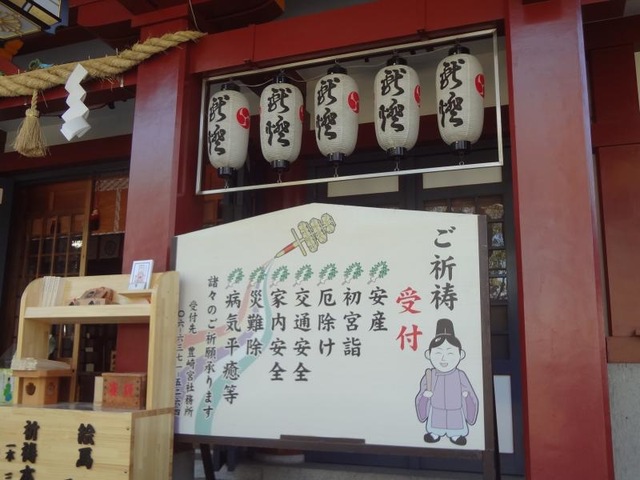 ご祈祷
受付
安産
初宮詣
厄除け
交通安全
家内安全
災難除
病気平癒等
諸々のご祈願承ります
受付先 豊崎宮社務所
〇六-六三七一-五二六四
絵馬
祈祷木